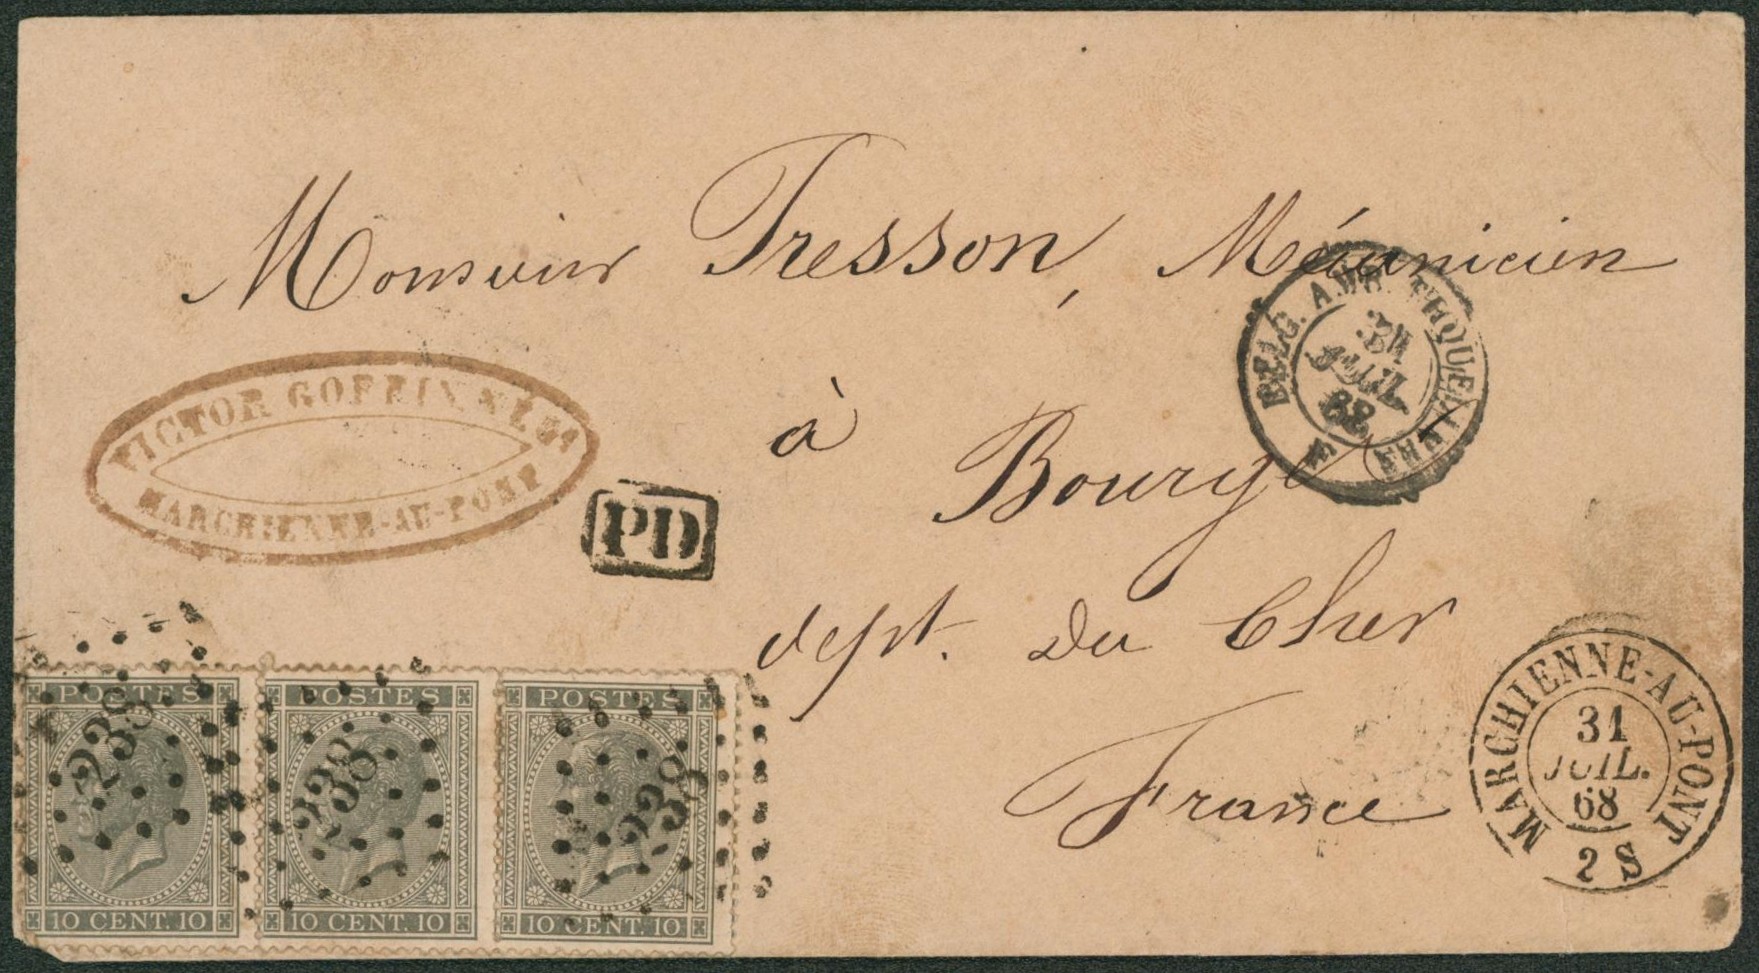 Monsieur Tresson, Mécanicien
à
Bourges
dept. du Cher
France
VICTOR
MARCHIENNE-AU-PONT
PD
BELG. A
31
JUIL.
68
MARCHIENNE-AU-PONT
31
JUIL.
68
2 S
POSTES
238
10 CENT. 10
POSTES
238
10 CENT. 10
POSTES
238
10 CENT. 10